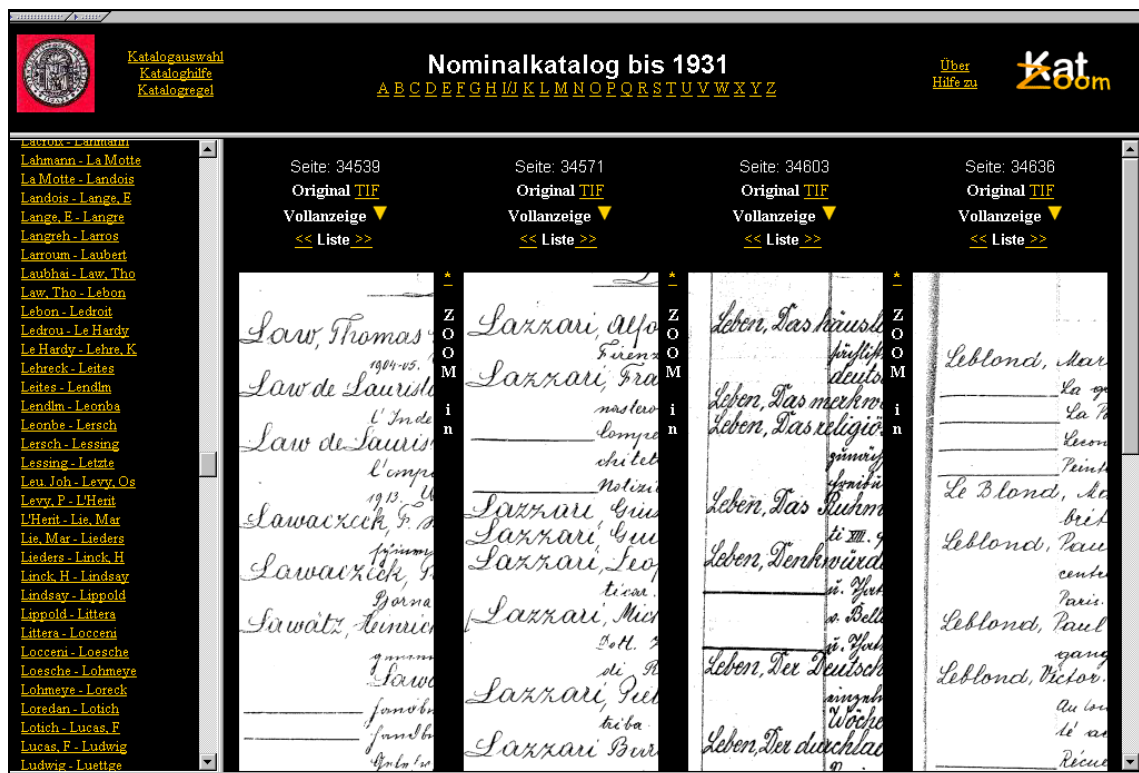 Katalogauswahl
Kataloghilfe
Katalogregel
Nominalkatalog bis 1931
A B C D E F G H I/J K L M N O P Q R S T U V W X Y Z
Über
Hilfe zu
Kat
Zoom
Lacroix - Lahmann
Lahmann - La Motte
La Motte - Landois
Landois - Lange, E
Lange, E - Langre
Langreh - Larros
Larroum - Laubert
Laubhai - Law, Tho
Law, Tho - Lebon
Lebon - Ledroit
Ledrou - Le Hardy
Le Hardy - Lehre, K
Lehreck - Leites
Leites - Lendlm
Lendlm - Leonba
Leonbe - Lersch
Lersch - Lessing
Lessing - Letzte
Leu, Joh - Levy, Os
Levy, P - L'Herit
L'Herit - Lie, Mar
Lie, Mar - Lieders
Lieders - Linck, H
Linck, H - Lindsay
Lindsay - Lippold
Lippold - Littera
Littera - Locceni
Locceni - Loesche
Loesche - Lohmeye
Lohmeye - Loreck
Loredan - Lotich
Lotich - Lucas, F
Lucas, F - Ludwig
Ludwig - Luettge
Seite: 34539
Original TIF
Vollanzeige
<< Liste >>
Law, Thomas
1904-05.
Law de Lauristo
l'Inde
Law de Lauris
l'empi
1913.
Lawaczeck, F.
Lawaczeck, F.
Borna
Lawätz, Heinrich
* ZOOM in
Seite: 34571
Original TIF
Vollanzeige
<< Liste >>
Lazzari, Alfo
Firenz
Lazzari, Fra
nastero
compe
chitet
Notizi
Lazzari Giu
Lazzari Giu
Lazzari, Leo
ticar.
Lazzari, Mich
Dott.
di
Lazzari,
triba
Lazzari
* ZOOM in
Seite: 34603
Original TIF
Vollanzeige
<< Liste >>
Leben, Das häusl
deuts
Leben, Das merkw
Leben, Das religiö
Leben, Das Ruhm
ti XIII.
Leben, Denkwürd
u.
v. Belle
u.
Leben, Der Deutsch
einzeln
Woche
Leben, Der durchlau
* ZOOM in
Seite: 34636
Original TIF
Vollanzeige
<< Liste >>
Leblond, Mar
La
La
Lecon
Peint
Le Blond,
brit
Leblond, Pau
centr
Paris.
Leblond, Paul
gang
Leblond, Victor.
au
té
Récue